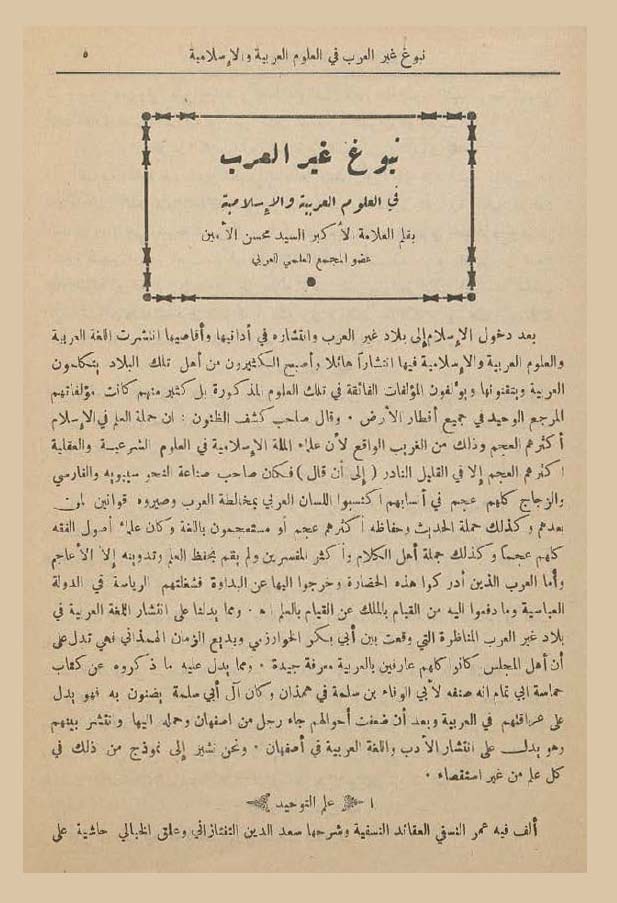 نبوغ غير العرب في العلوم العربية والإسلامية ٥
نبوغ غير العرب
في العلوم العربية والإسلامية
بقلم العلامة الأكبر السيد محسن الأمين
عضو المجمع العلمي العربي
بعد دخول الإسلام إلى بلاد غير العرب وانتشاره في أدانيها وأقاصيها انتشرت اللغة العربية
والعلوم العربية والإسلامية فيها انتشاراً هائلا وأصبح الكثيرون من أهل تلك البلاد يتكلمون
العربية ويتقنونها ويؤلفون المؤلفات الفائقة في تلك العلوم المذكورة بل كثير منهم كانت مؤلفاتهم
المرجع الوحيد في جميع أقطار الأرض . وقال صاحب كشف الظنون : ان حملة العلم في الإسلام
أكثرهم العجم وذلك من الغريب الواقع لأن علماء الملة الإسلامية في العلوم الشرعية والعقلية
اكثرهم العجم إلا في القليل النادر ( إلى أن قال ) فكان صاحب صناعة النحو سيبويه والفارسي
والزجاج كلهم عجم في أنسابهم اكتسبوا اللسان العربي بمخالطة العرب وصيروه قوانين لمن
بعدهم وكذلك حملة الحديث وحفاظه أكثرهم عجم أو مستعجمون باللغة وكان علماء أصول الفقه
كلهم عجماً وكذلك جملة أهل الكلام وأكثر المفسرين ولم يقم بحفظ العلم وتدوينه إلا الأعاجم
وأما العرب الذين أدركوا هذه الحضارة وخرجوا اليها عن البداوة فشغلتهم الرياسة في الدولة
العباسية وما دفعوا اليه من القيام بالملك عن القيام بالعلم اه . ومما يدلنا على انتشار اللغة العربية في
بلاد غير العرب المناظرة التي وقعت بين أبي بكر الخوارزمي وبديع الزمان الهمذاني فهي تدل على
أن أهل المجلس كانوا كلهم عارفين بالعربية معرفة جيدة . ومما يدل عليه ما ذكروه عن كتاب
حماسة ابي تمام انه صنفه لأبي الوفاء بن سلمة في همذان وكان آل أبي سلمة يضنون به فهو يدل
على عراقتهم في العربية وبعد أن ضعفت أحوالهم جاء رجل من اصفهان وحمله اليها وانتشر بينهم
وهو يدل على انتشار الأدب واللغة العربية في أصفهان . ونحن نشير إلى نموذج من ذلك في
كل علم من غير استقصاء .
١ علم التوحيد
ألف فيه عمر النسفي العقائد النسفية وشرحها سعد الدين التفتازاني وعلق الخيالي حاشية على